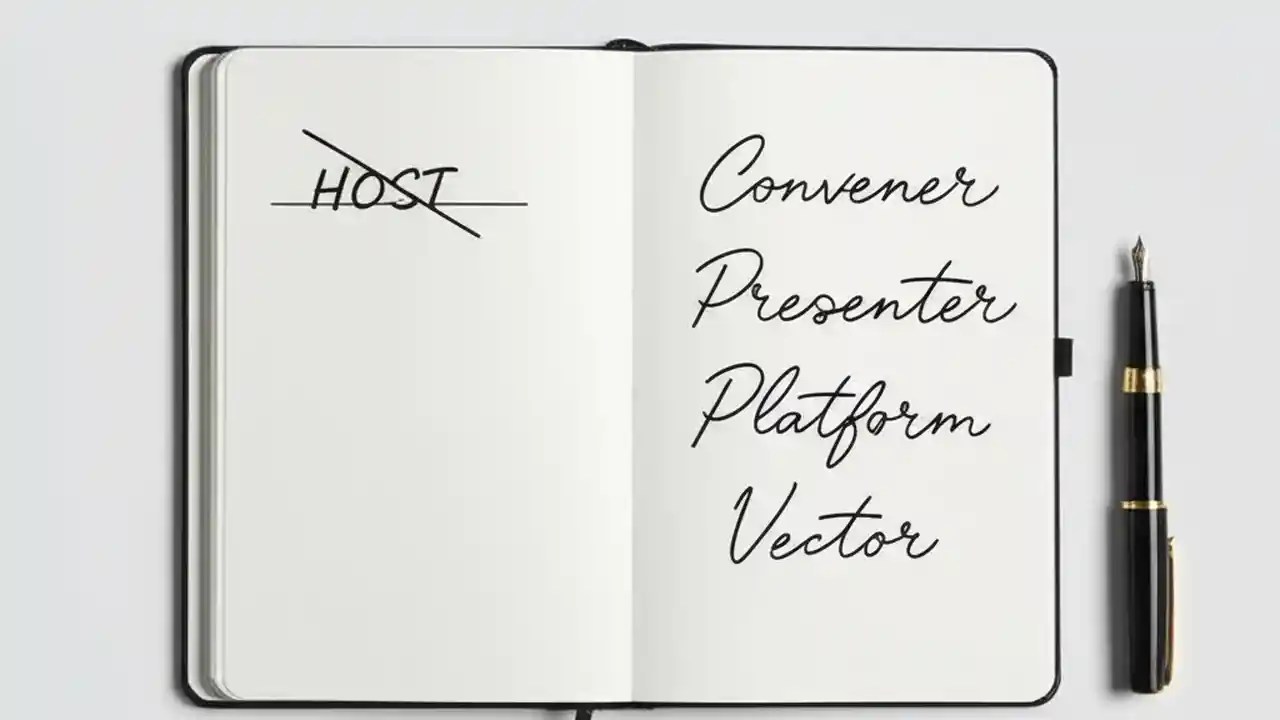 HOST
Convener
Presenter
Platform
Vector